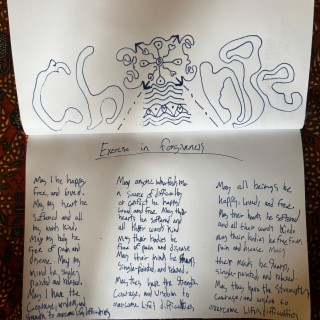 Ch nge
Exercise in forgiveness
May I be happy
free, and loved.
May my heart be
softened and all
my words kind.
May my body be
free of pain and
disease. May my
mind be single
pointed and relaxed.
May I have the
Courage, wisdom and
strength to overcome life difficulties
May anyone who
a source of difficulty
or conflict be happy
loved and free. May their
hearts be softened and
all their words kind
May their bodies be
free of pain and disease
May their minds be sharp,
single-pointed, and relaxed.
May they have the strength
Courage, and wisdom to
overcome life's difficulties
May all beings be
happy, loved, and free.
May their hearts be softened
and all their words kind
may their bodies be free from
pain and disease. May
their minds be sharp,
single-pointed and relaxed
May they have the strength
Courage, and wisdom to
overcome life's difficulties